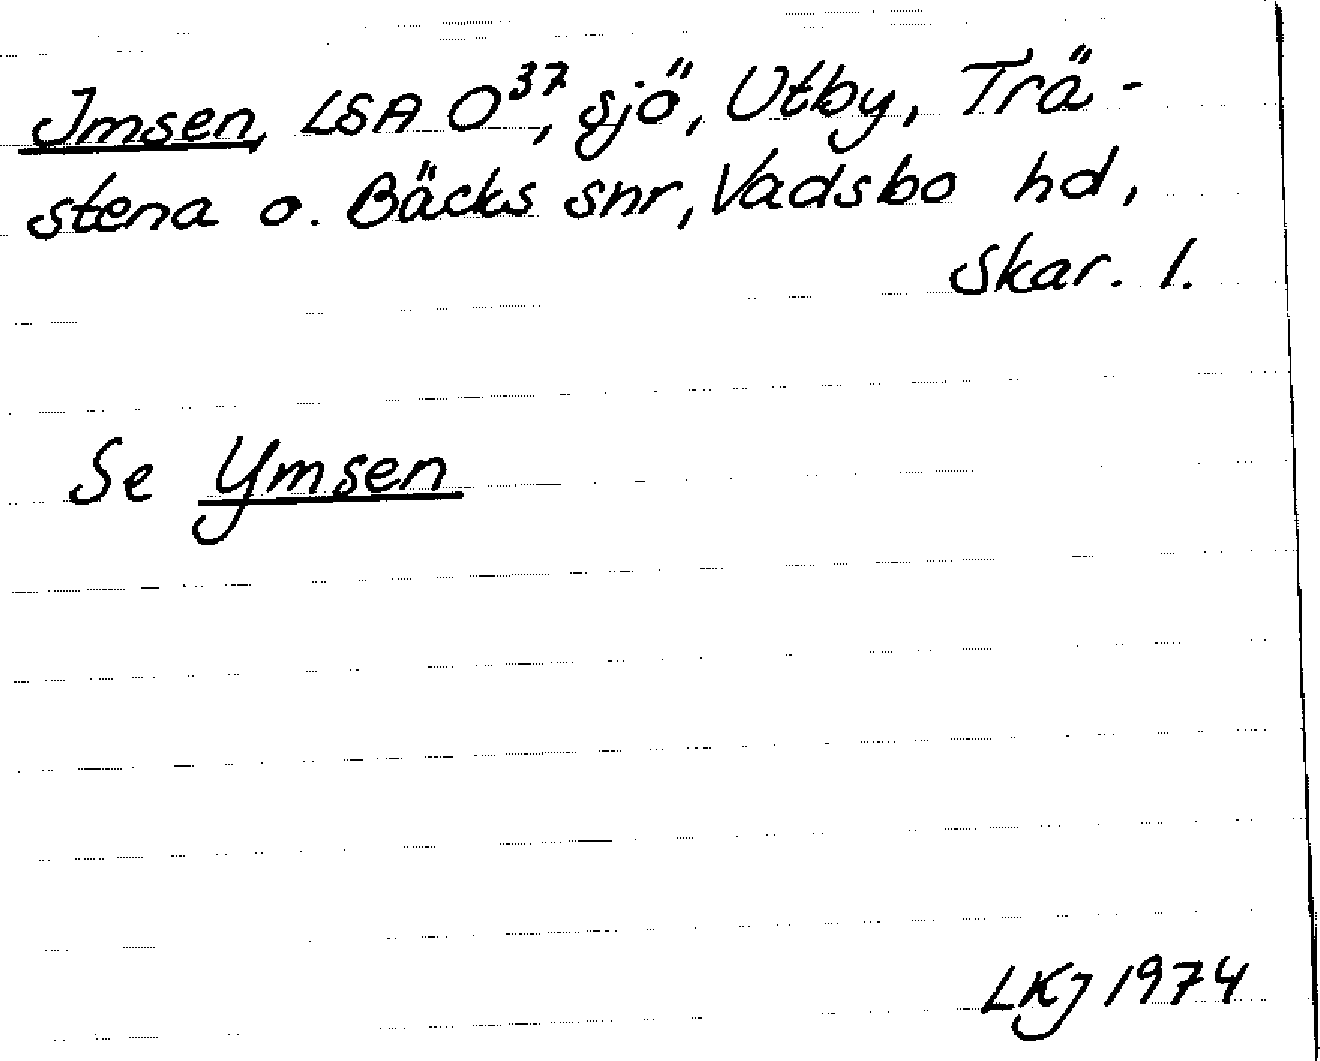 Imsen, LSA O³⁷, sjö, Utby, Trä-
stena o. Bäcks snr, Vadsbo hd,
Skar. l.
Se Ymsen
LKJ 1974